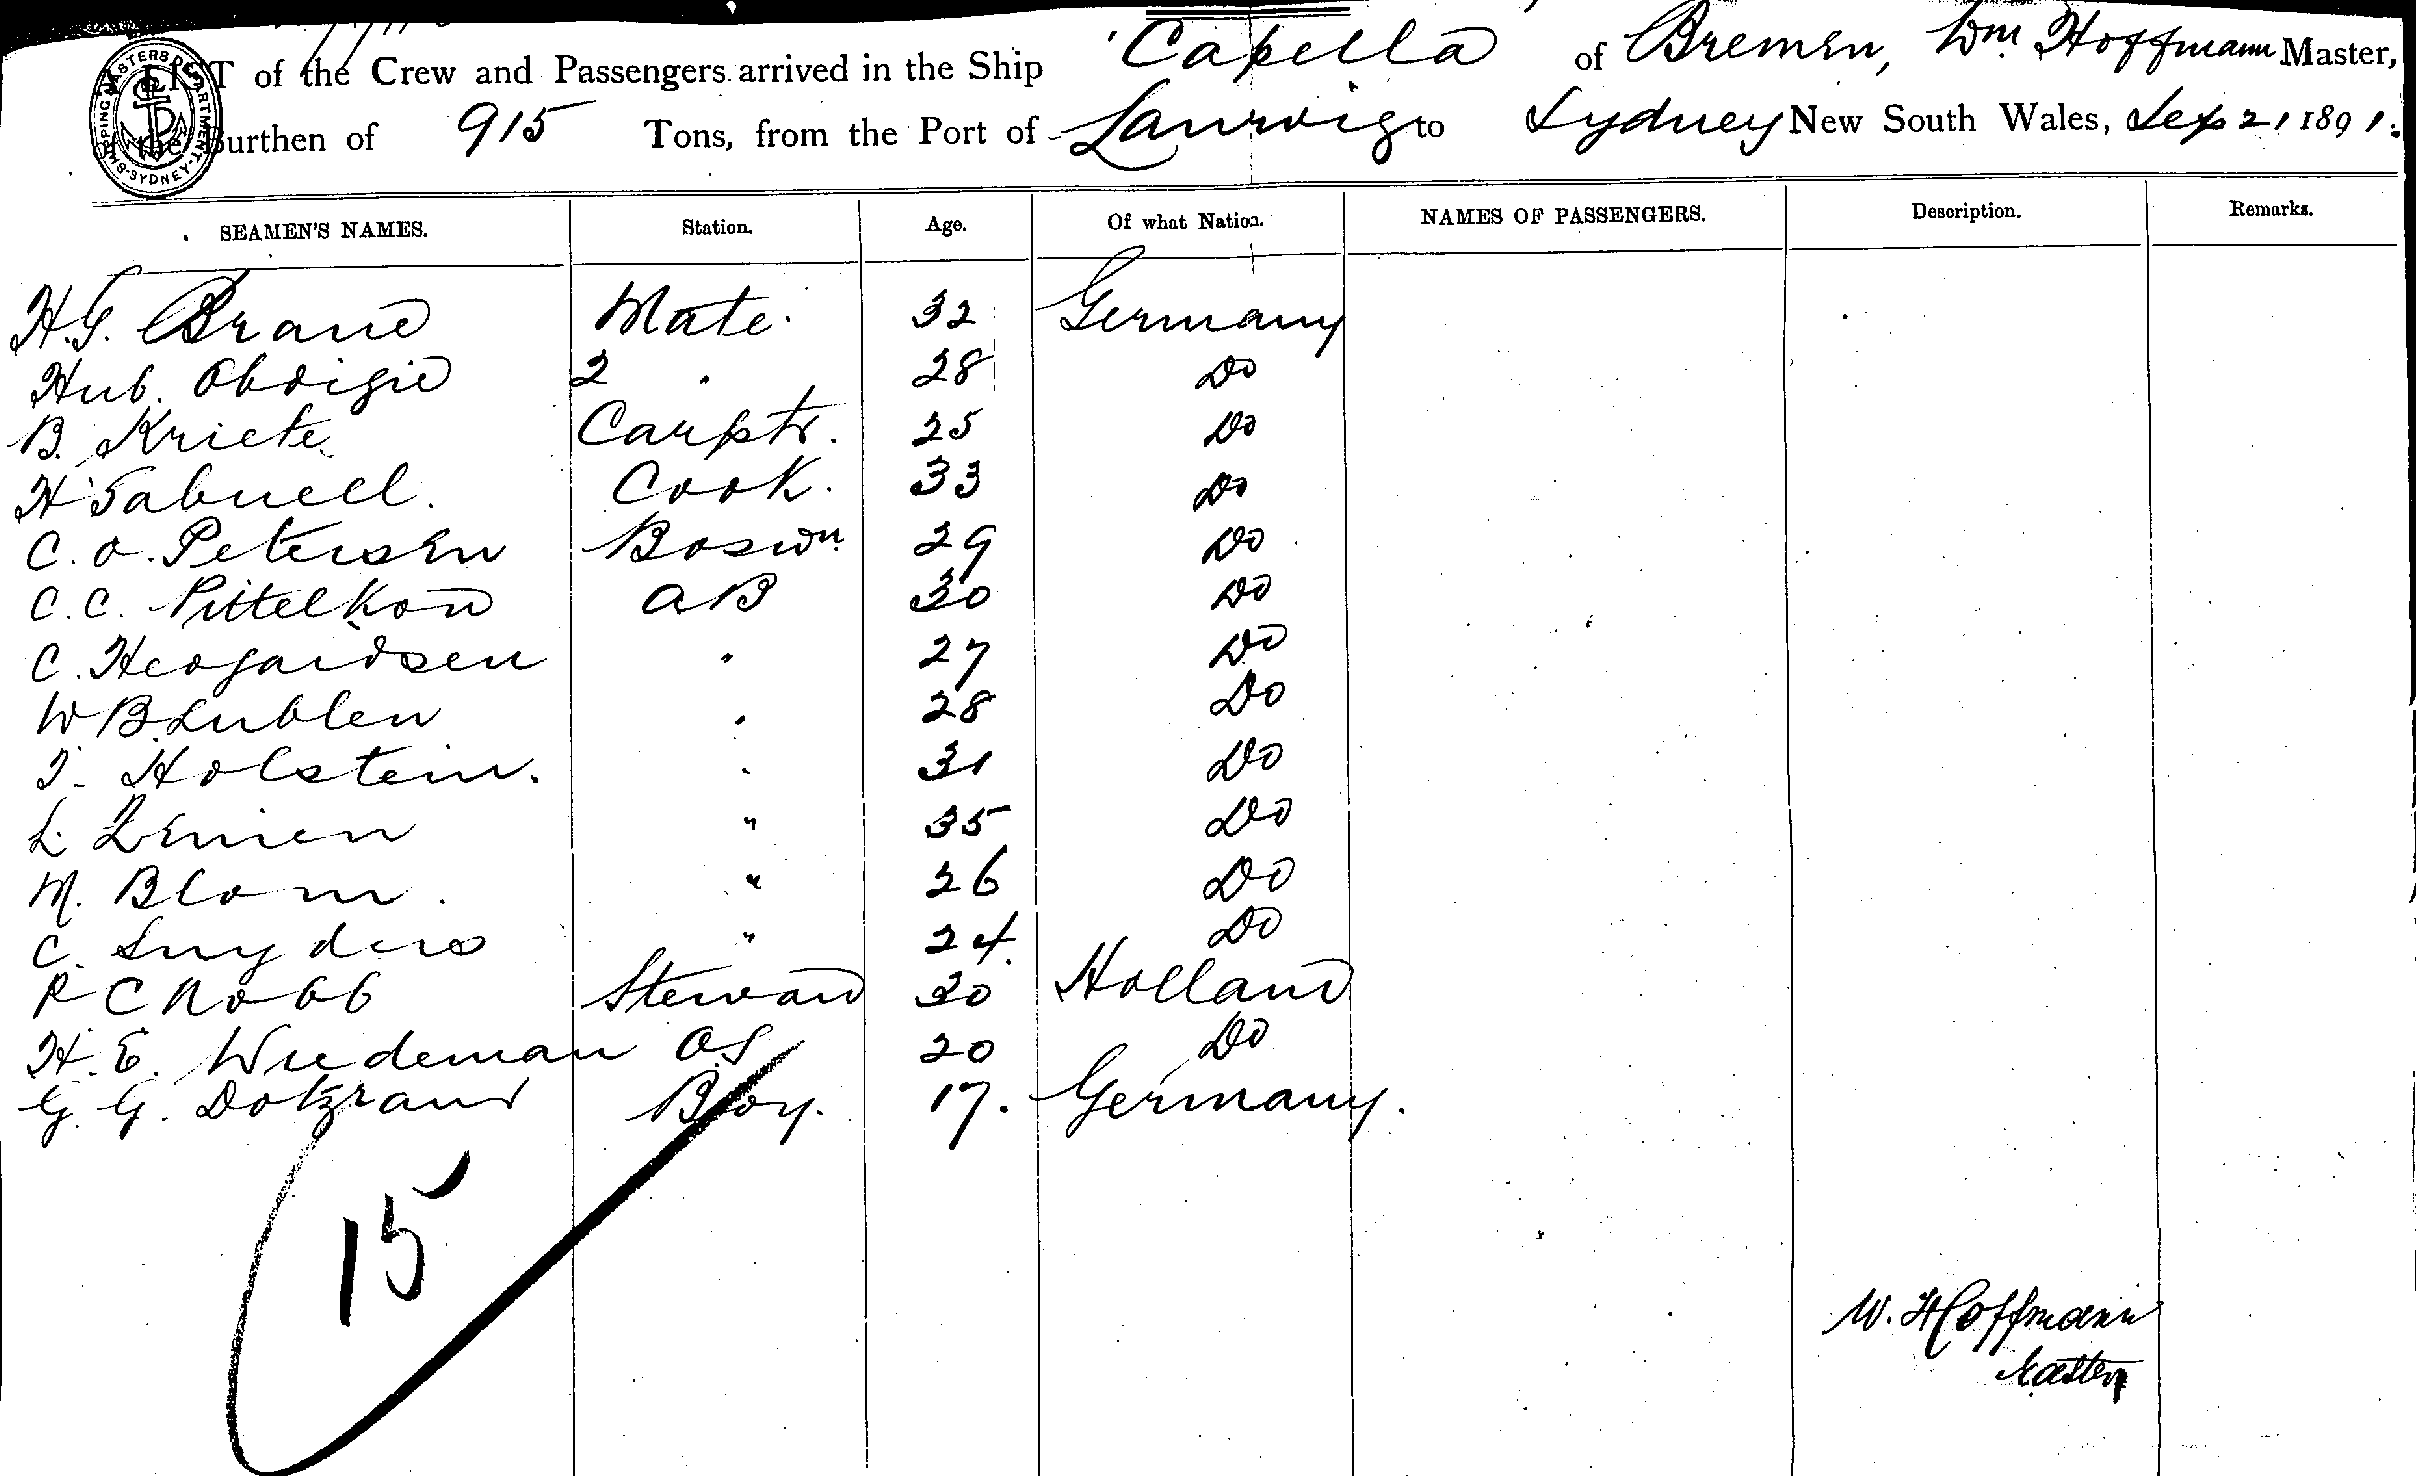 A LIST of the Crew and Passengers arrived in the Ship 'Capella of Bremen, Wm Hoffmann Master,
of the Burthen of 915 Tons, from the Port of Laurvig to Sydney New South Wales, Sep 21 1891.
SHIPPING MASTERS DEPARTMENT SYDNEY
SEAMEN'S NAMES. Station. Age. Of what Nation. NAMES OF PASSENGERS. Description. Remarks.
H.G. Brand Mate. 32 Germany
Hub. 2 " 28 Do
B. Kriete Carptr. 25 Do
H Sabnell. Cook. 33 Do
C. O. Petersen Boswn 29 Do
C. C. Pittelkow AB 30 Do
C. " 27 Do
W B Lublen " 28 Do
Holstein. " 31 Do
L. " 35 Do
M. Blom. " 26 Do
C. Snyders " 24. Do
R C Nobb Steward 30 Holland
H. E. Wiedeman OS 20 Do
G. G. Boy. 17. Germany.
15
W. Hoffmann
Master